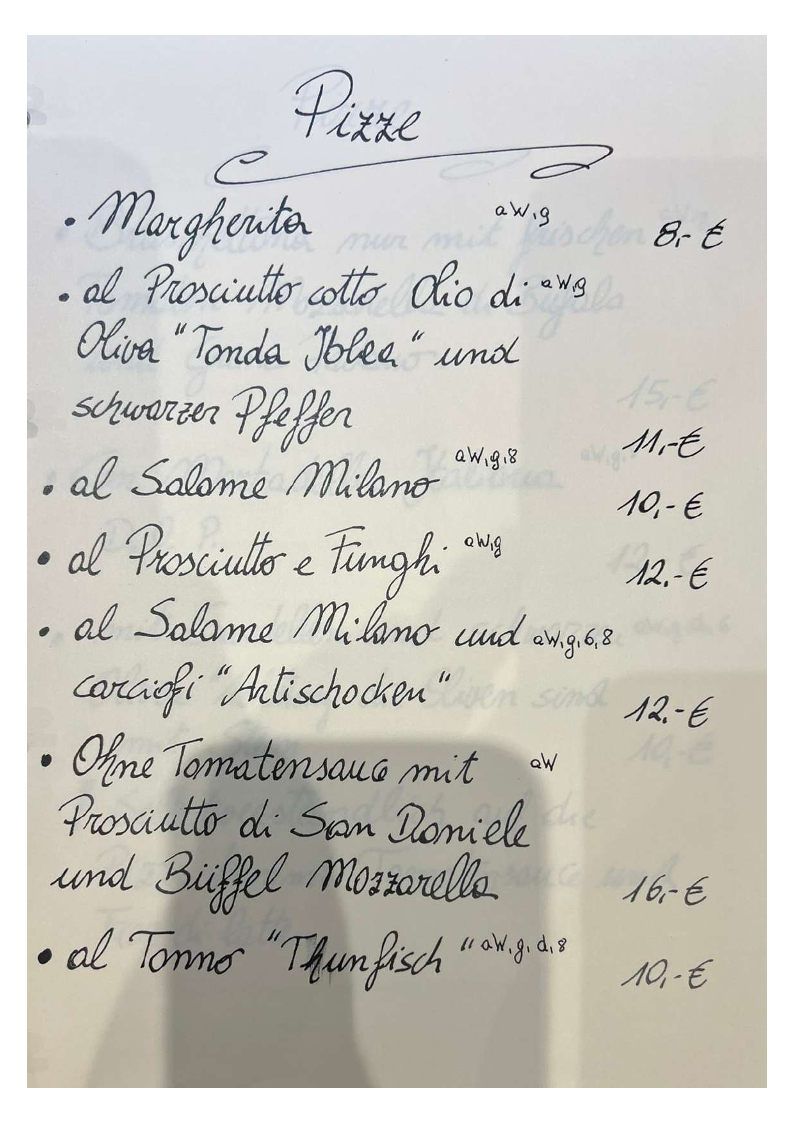 Pizze
• Margherita aW,g 8,- €
• al Prosciutto cotto Olio di aW,g
Oliva "Tonda Iblea" und
schwarzer Pfeffer 11,- €
• al Salame Milano aW,g,8 10,- €
• al Prosciutto e Funghi aW,g 12.- €
• al Salame Milano und aW,g,6,8
carciofi "Artischocken" 12.- €
• Ohne Tomatensauce mit aW
Prosciutto di San Daniele
und Büffel Mozzarella 16,- €
• al Tonno "Thunfisch" aW,g,d,8 10,- €